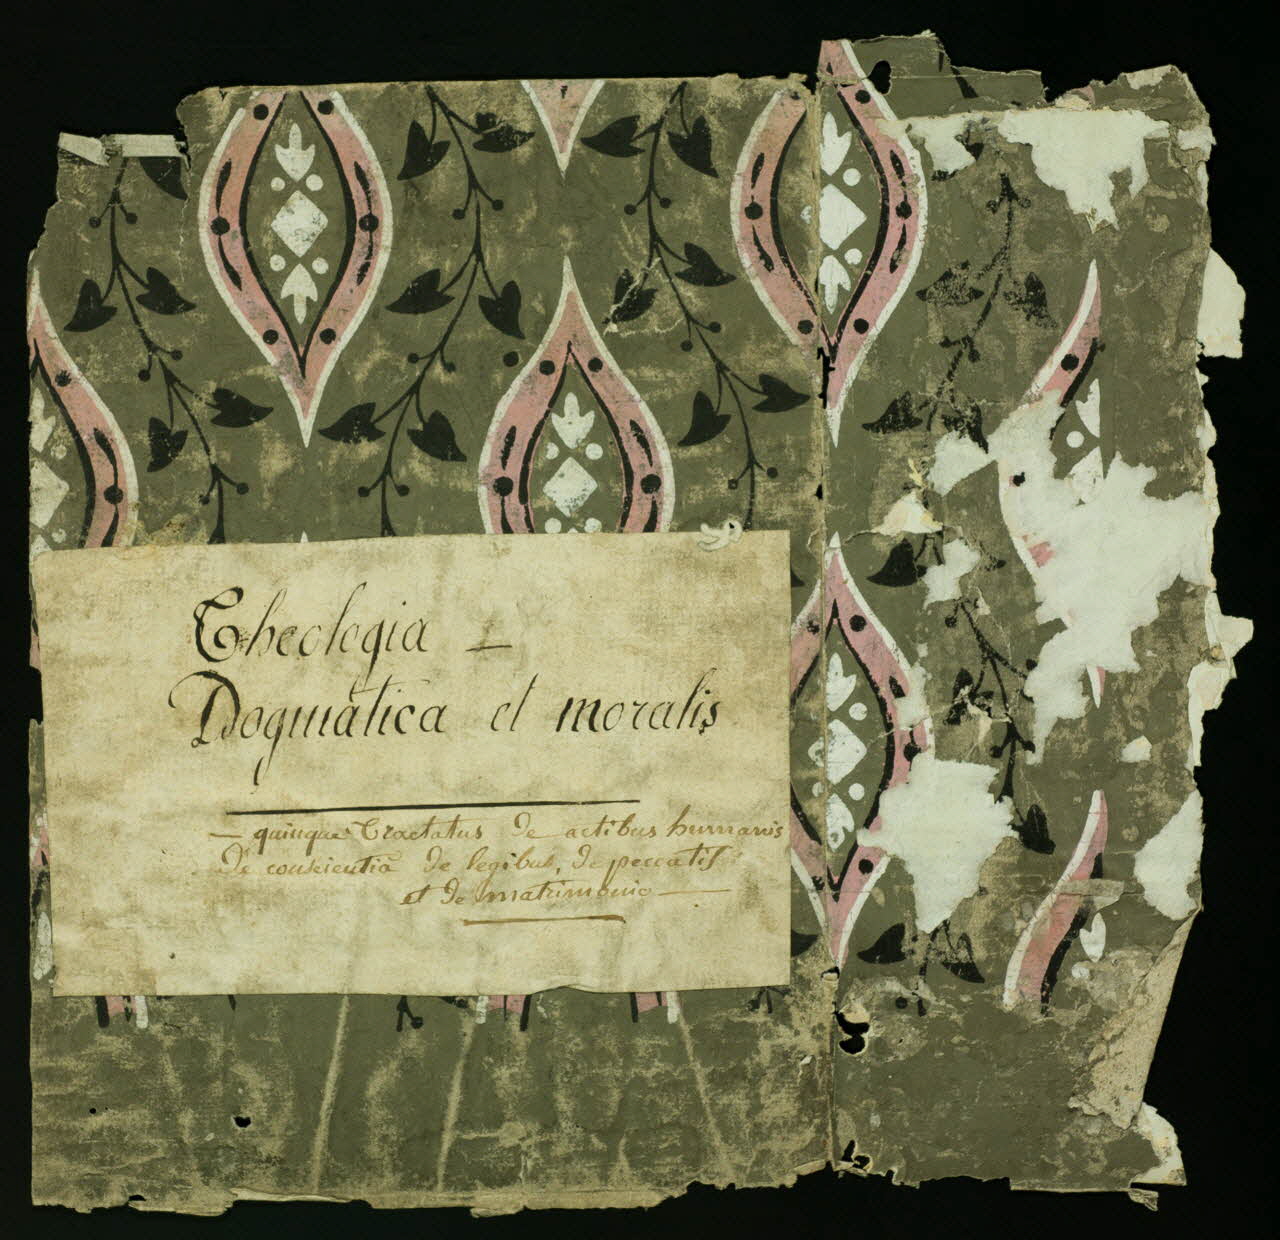 Theologia —
Dogmatica et moralis
— quinque Tractatus De actibus humanis
De conscientiâ De legibus, De peccatis
et De matrimonio —